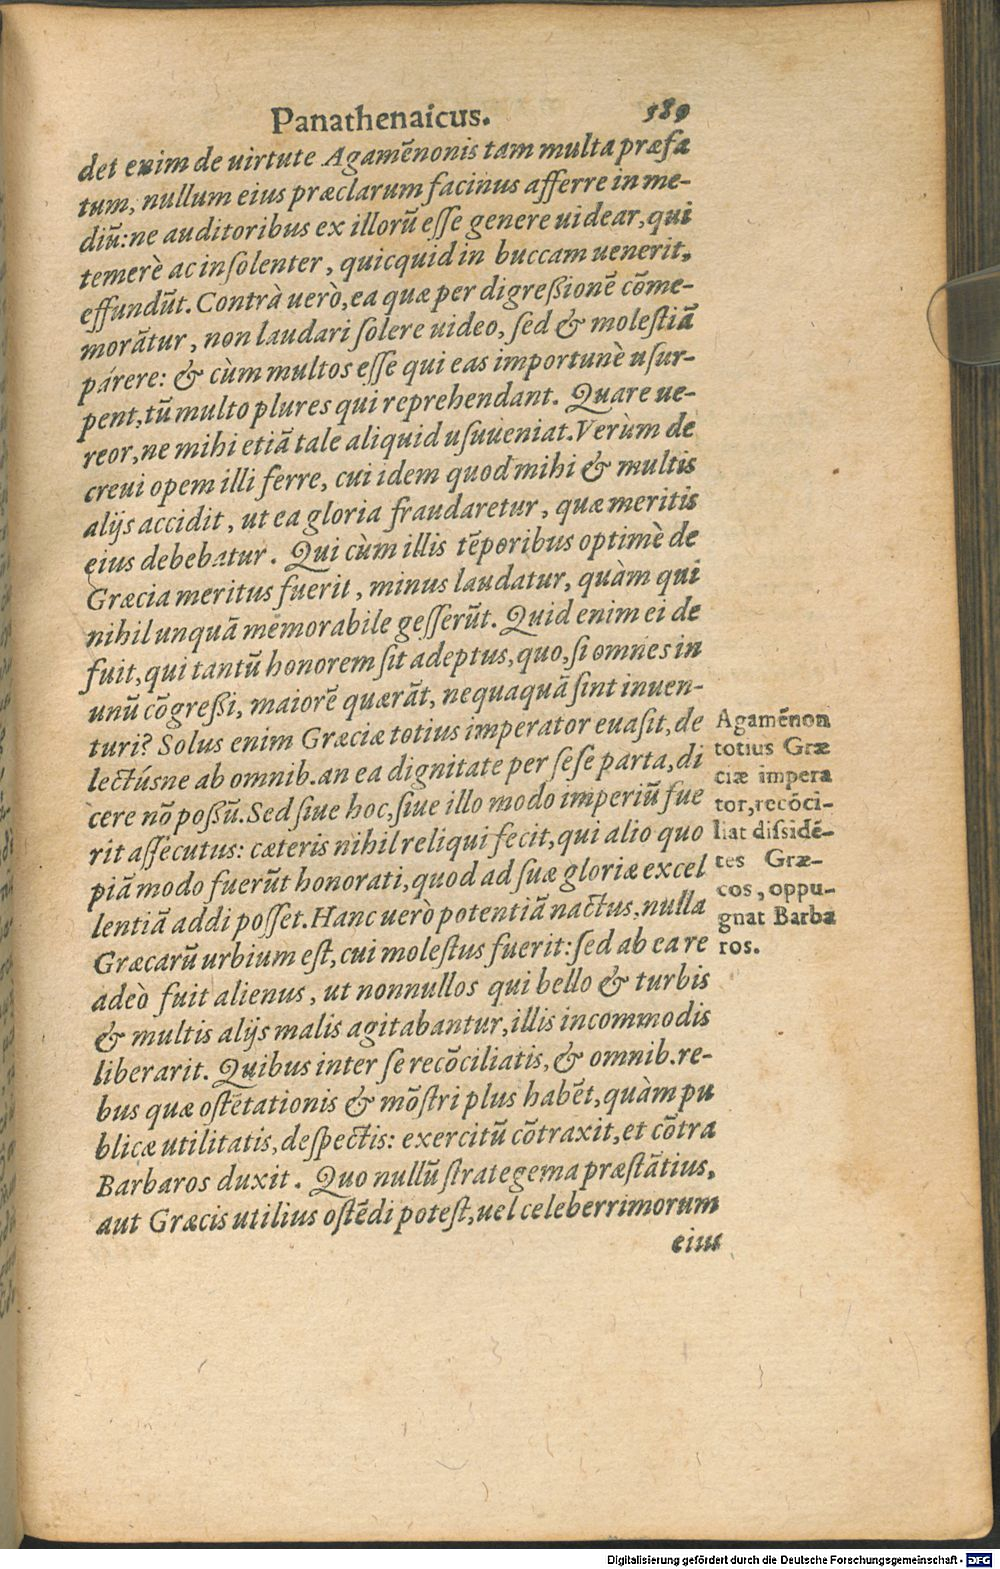 Panathenaicus. 589
det enim de uirtute Agamēnonis tam multa præfa
tum, nullum eius præclarum facinus afferre in me-
diū: ne auditoribus ex illorū eſſe genere uidear, qui
temerè ac inſolenter, quicquid in buccam uenerit,
effundūt. Contrà uerò, ea quæ per digreßionē cōme-
morātur, non laudari ſolere uideo, ſed & moleſtiā
párere: & cùm multos eſſe qui eas importunè uſur-
pent, tū multo plures qui reprehendant. Quare ue-
reor, ne mihi etiā tale aliquid uſuueniat. Verùm de
creui opem illi ferre, cui idem quod mihi & multis
alijs accidit, ut ea gloria fraudaretur, quæ meritis
eius debebatur. Qui cùm illis tēporibus optimè de
Græcia meritus fuerit, minus laudatur, quàm qui
nihil unquā memorabile geſſerūt. Quid enim ei de
fuit, qui tantū honorem ſit adeptus, quo, ſi omnes in
unū cōgreßi, maiorē quærāt, nequaquā ſint inuen-
turi? Solus enim Græciæ totius imperator euaſit, de
lectúsne ab omnib. an ea dignitate per ſeſe parta, di
cere nō poßū. Sed ſiue hoc, ſiue illo modo imperiū fue
rit aſſecutus: cæteris nihil reliqui fecit, qui alio quo
piā modo fuerūt honorati, quod ad ſuæ gloriæ excel
lentiā addi poſſet. Hanc uerò potentiā nactus, nulla
Græcarū urbium eſt, cui moleſtus fuerit: ſed ab ea re
adeò fuit alienus, ut nonnullos qui bello & turbis
& multis alijs malis agitabantur, illis incommodis
liberarit. Quibus inter ſe recōciliatis, & omnib. re-
bus quæ oſtētationis & mōſtri plus habēt, quàm pu
blicæ utilitatis, deſpectis: exercitū cōtraxit, et cōtra
Barbaros duxit. Quo nullū ſtrategema præſtātius,
aut Græcis utilius oſtēdi poteſt, uel celeberrimorum
eius
Agamēnon
totius Græ
ciæ impera
tor, recōci-
liat diſsidē-
tes Græ-
cos, oppu-
gnat Barba
ros.
Digitalisierung gefördert durch die Deutsche Forschungsgemeinschaft - DFG